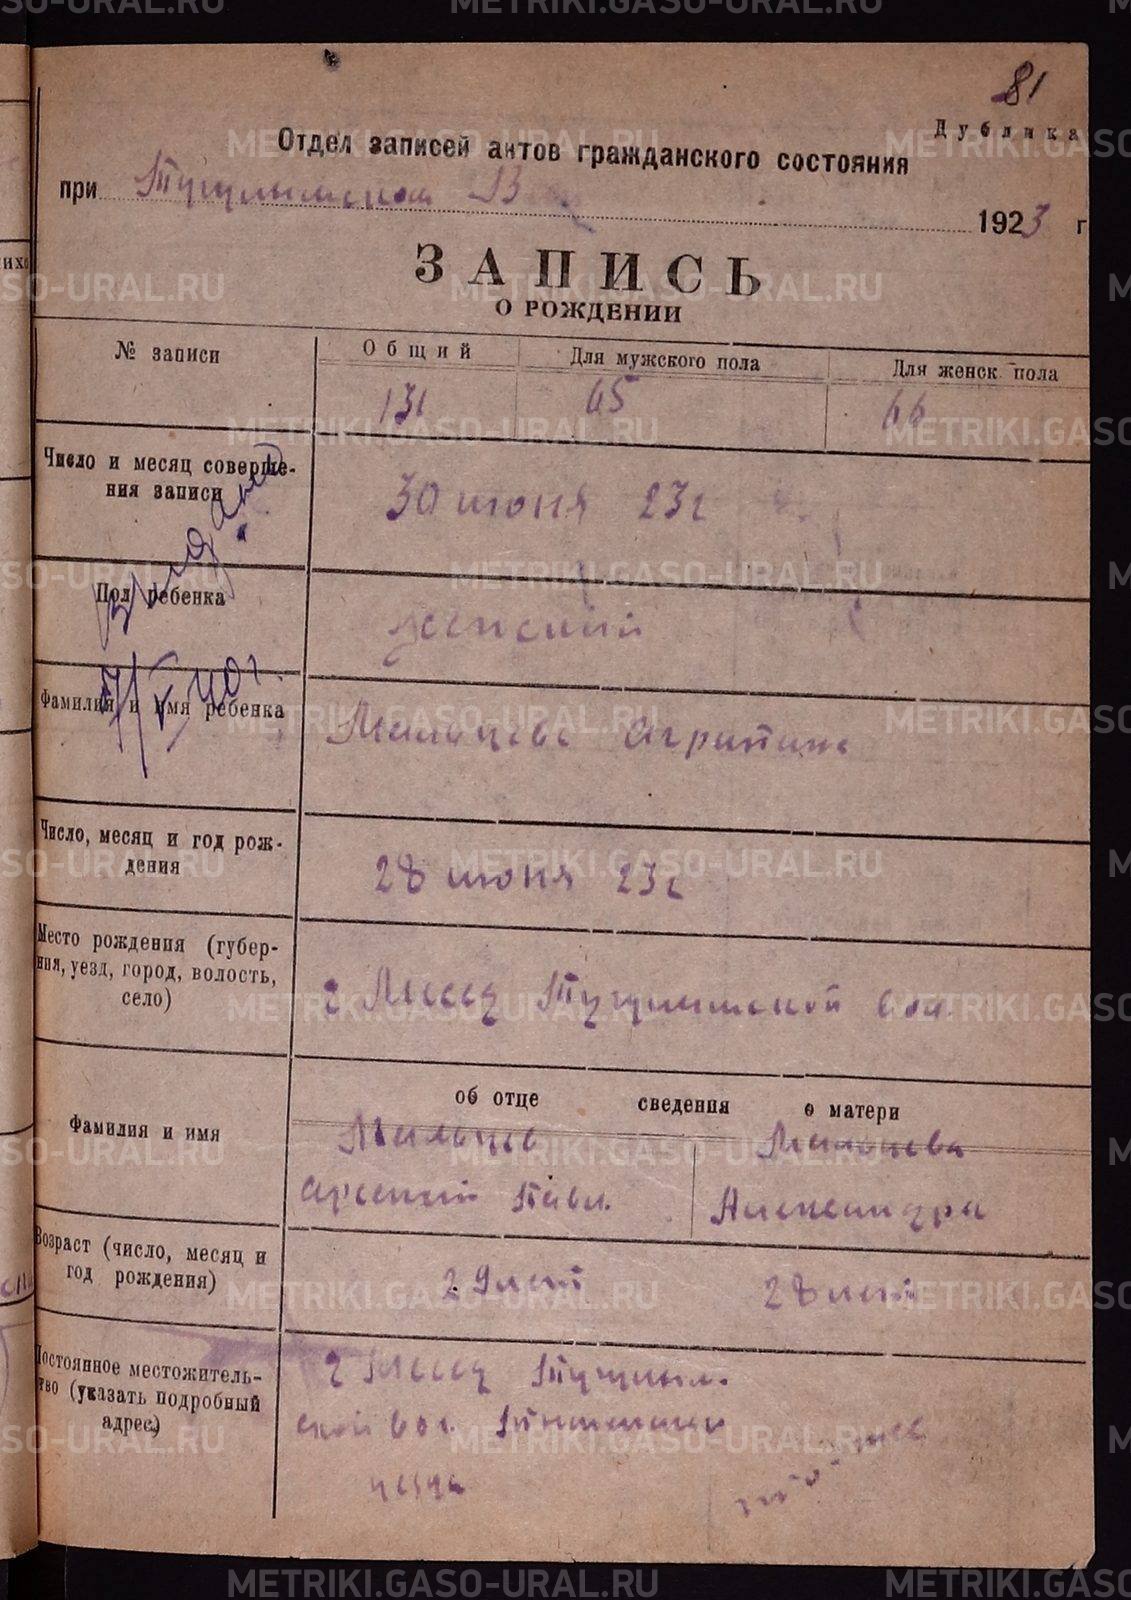 METRIKI.GASO-URAL.RU
81
Дублика
Отдел записей актов гражданского состояния
при Тугулымском В
1923 г
ЗАПИСЬ
О РОЖДЕНИИ
№ записи
Общий
Для мужского пола
Для женск. пола
131
65
66
Число и месяц соверше-
ния записи
30 июня 23г
Пол ребенка
женский
Фамилия и имя ребенка
Мальцева Агрипина
Число, месяц и год рож-
дения
28 июня 23г
Место рождения (губер-
ния, уезд, город, волость,
село)
Тугулымской вол.
Фамилия и имя
об отце сведения о матери
Мальцев
Мальцева
Арсений Павл.
Александра
Возраст (число, месяц и
год рождения)
29 лет
28 лет
Постоянное местожитель-
ство (указать подробный
адрес)
Тугулым.
ской вол. Тюменского
уезда